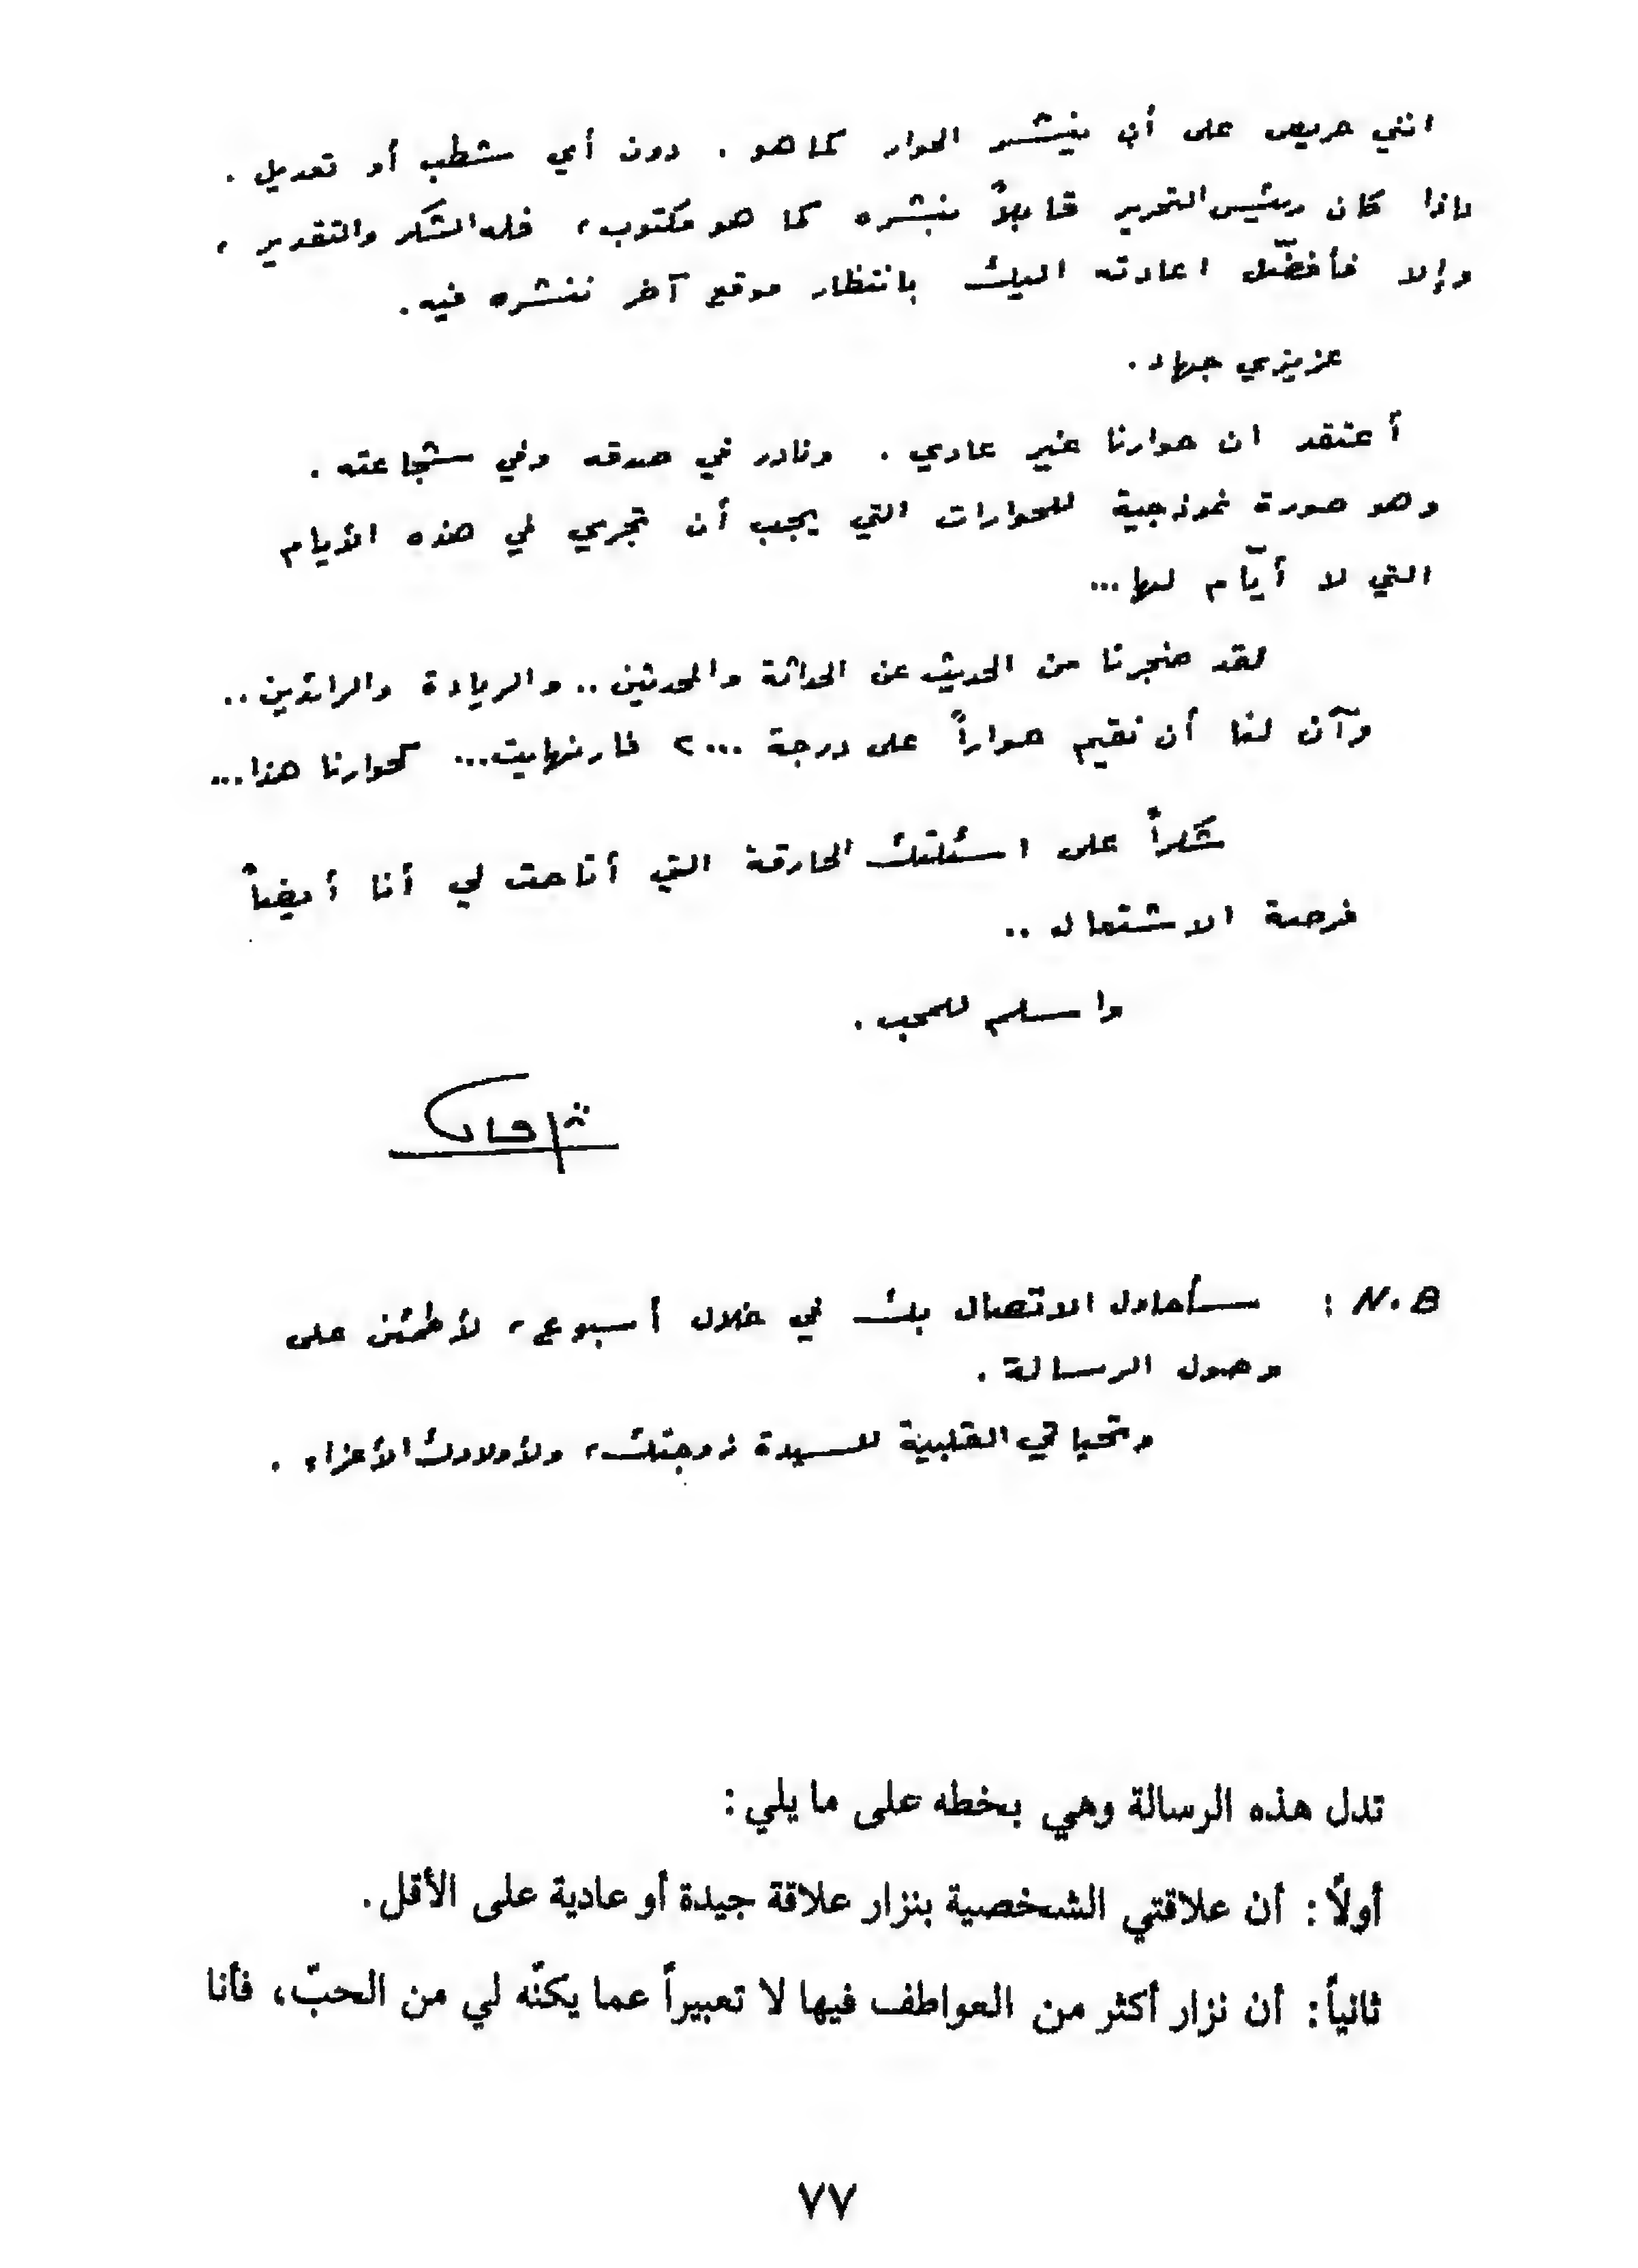 انني حريص على أن يُنشر الحوار كما هو . دون أي شطب أو تعديل .
فاذا كان رئيس التحرير قابلاً بنشره كما هو مكتوب، فله الشكر والتقدير ،
وإلا فأفضّل اعادته اليك بانتظار موقع آخر ننشره فيه .
عزيزي جهاد .
أعتقد ان حوارنا غير عادي . ونادر في صدقه وفي شجاعته .
وهو صورة نموذجية للحوارات التي يجب أن تجري في هذه الأيام
التي لا أيّام لها ...
لقد ضجرنا من الحديث عن الحداثة والمحدثين .. والريادة والرائدين ..
وآن لنا أن نقيم حواراً على درجة ٢٠٠٠ فارنهايت ... كحوارنا هذا ...
شكراً على اسئلتك الحارقة التي أتاحت لي أنا أيضاً
فرصة الاشتعال ..
واسلم للمحب .
N.B : سأحاول الاتصال بك في خلال أسبوع ، لأطمئن على
وصول الرسالة .
وتحياتي القلبية للسيدة زوجتك ، ولأولادك الأعزاء .
تدل هذه الرسالة وهي بخطه على ما يلي :
أولاً : أن علاقتي الشخصية بنزار علاقة جيدة أو عادية على الأقل .
ثانياً : أن نزار أكثر من العواطف فيها لا تعبيراً عما يكنّه لي من الحبّ ، فأنا
٧٧